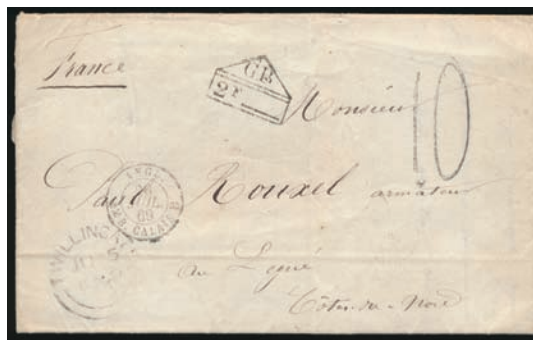 France
GB
2F
10
Monsieur
Paul Rouxel armateur
ANGL.
26
JUIL.
69
AMB. CALAIS B
TWILLINGATE
au Legué
Côtes-du-Nord